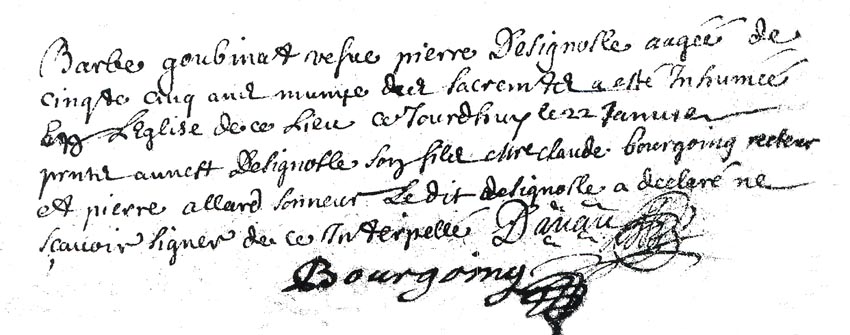 Barbe goubinat vefve pierre Designolle augée de
cinqte cinq ans munye des sacremtes a esté Inhumée
En L'Eglise de ce Lieu ce Jourdhuy le 22 Janvier
pnts annest Designolle son fils Mre claude bourgoing recteur
et pierre allard sonneur Le dit designolle a declaré ne
sçavoir signer de ce Interpellé Dangu
Bourgoing